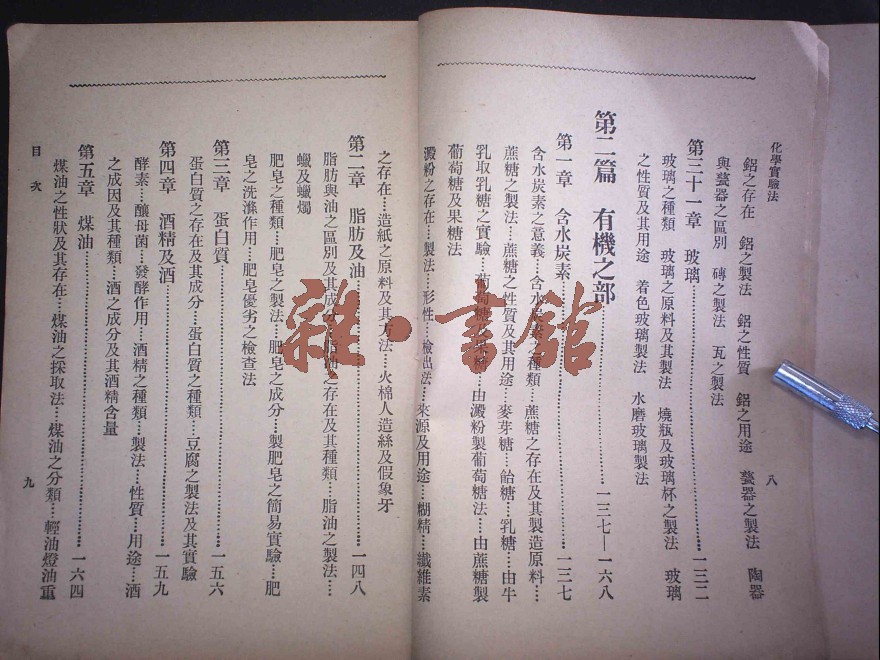 化學實驗法
八
鋁之存在　鋁之製法　鋁之性質　鋁之用途　甆器之製法　陶器
與甆器之區別　磚之製法　瓦之製法
第三十一章　玻璃……一三二
玻璃之種類　玻璃之原料及其製法　燒瓶及玻璃杯之製法　玻璃
之性質及其用途　着色玻璃製法　水磨玻璃製法
第二篇　有機之部……一三七—一六八
第一章　含水炭素……一三七
含水炭素之意義…含水炭素之種類…蔗糖之存在及其製造原料…
蔗糖之製法…蔗糖之性質及其用途…麥芽糖…飴糖…乳糖…由牛
乳取乳糖之實驗…葡萄糖及果糖…由澱粉製葡萄糖法…由蔗糖製
葡萄糖及果糖法
澱粉之存在…製法…形性…檢出法…來源及用途…糊精…纖維素
之存在…造紙之原料及其方法…火棉人造絲及假象牙
第二章　脂肪及油……一四八
脂肪與油之區別及其成分…脂油之存在及其種類…脂油之製法…
蠟及蠟燭
肥皂之種類…肥皂之製法…肥皂之成分…製肥皂之簡易實驗…肥
皂之洗滌作用…肥皂優劣之檢查法
第三章　蛋白質……一五六
蛋白質之存在及其成分…蛋白質之種類…豆腐之製法及其實驗
第四章　酒精及酒……一五九
酵素…釀母菌…發酵作用…酒精之種類…製法…性質…用途…酒
之成因及其種類…酒之成分及其酒精含量
第五章　煤油……一六四
煤油之性狀及其存在…煤油之採取法…煤油之分類…輕油燈油重
目次
九
雜·書館